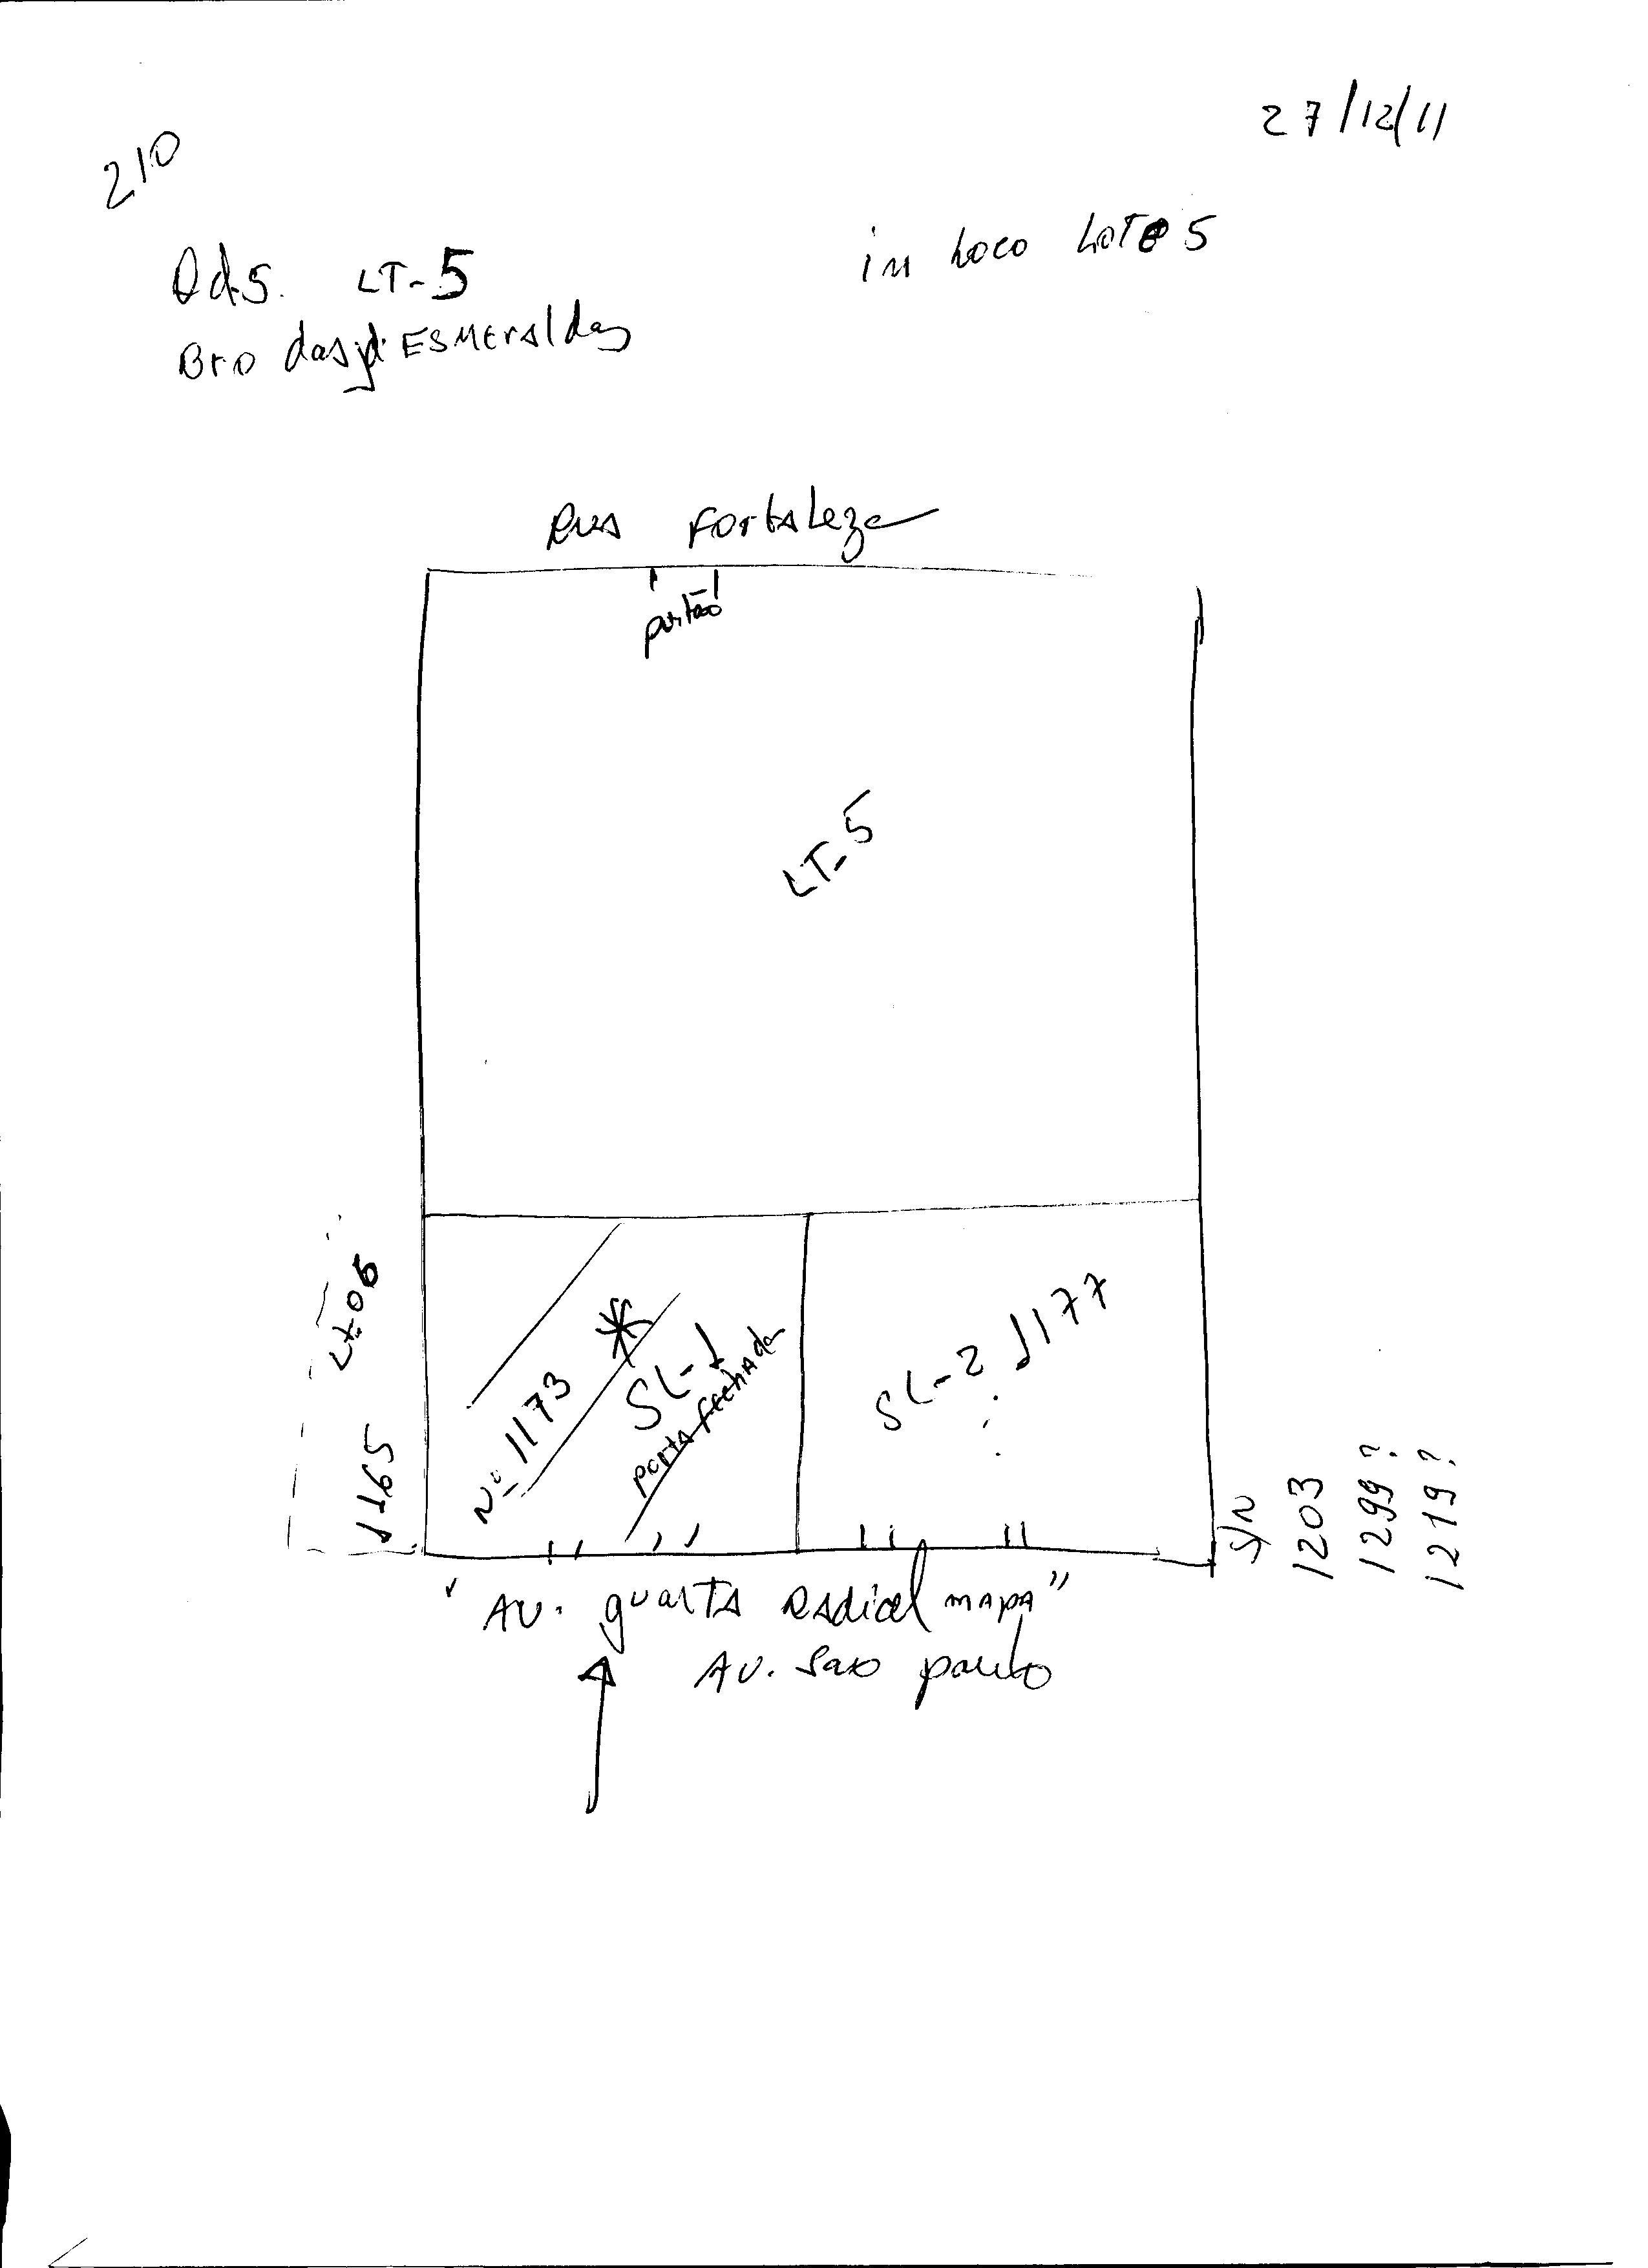 27/12/11
210
in Loco LOTE 5
Qd.5. LT-5
Bro das jd: ESMEraldas
Rua Fortaleza
portão
LT-5
Lt.06
1165
Nº 1173
SL-1
porta fechada
SL-2 1177
S/N
1203
1299?
1219?
"AV. quarta Radical mapa"
AV. Sao paulo